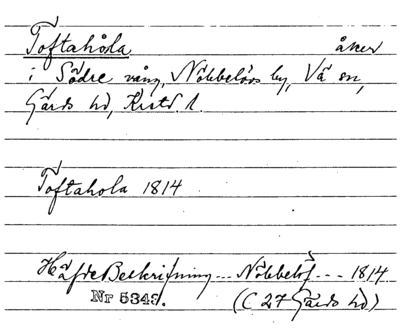 Toftahåla åker
i Södre vång, Nöbbelövs by, Vä sn,
Gärds hd, Krstd. l.
Toftahola 1814
Häfde Beskrifning ... Nöbbelöf ... 1814
Nr 5343. (C 27 Gärds hd)